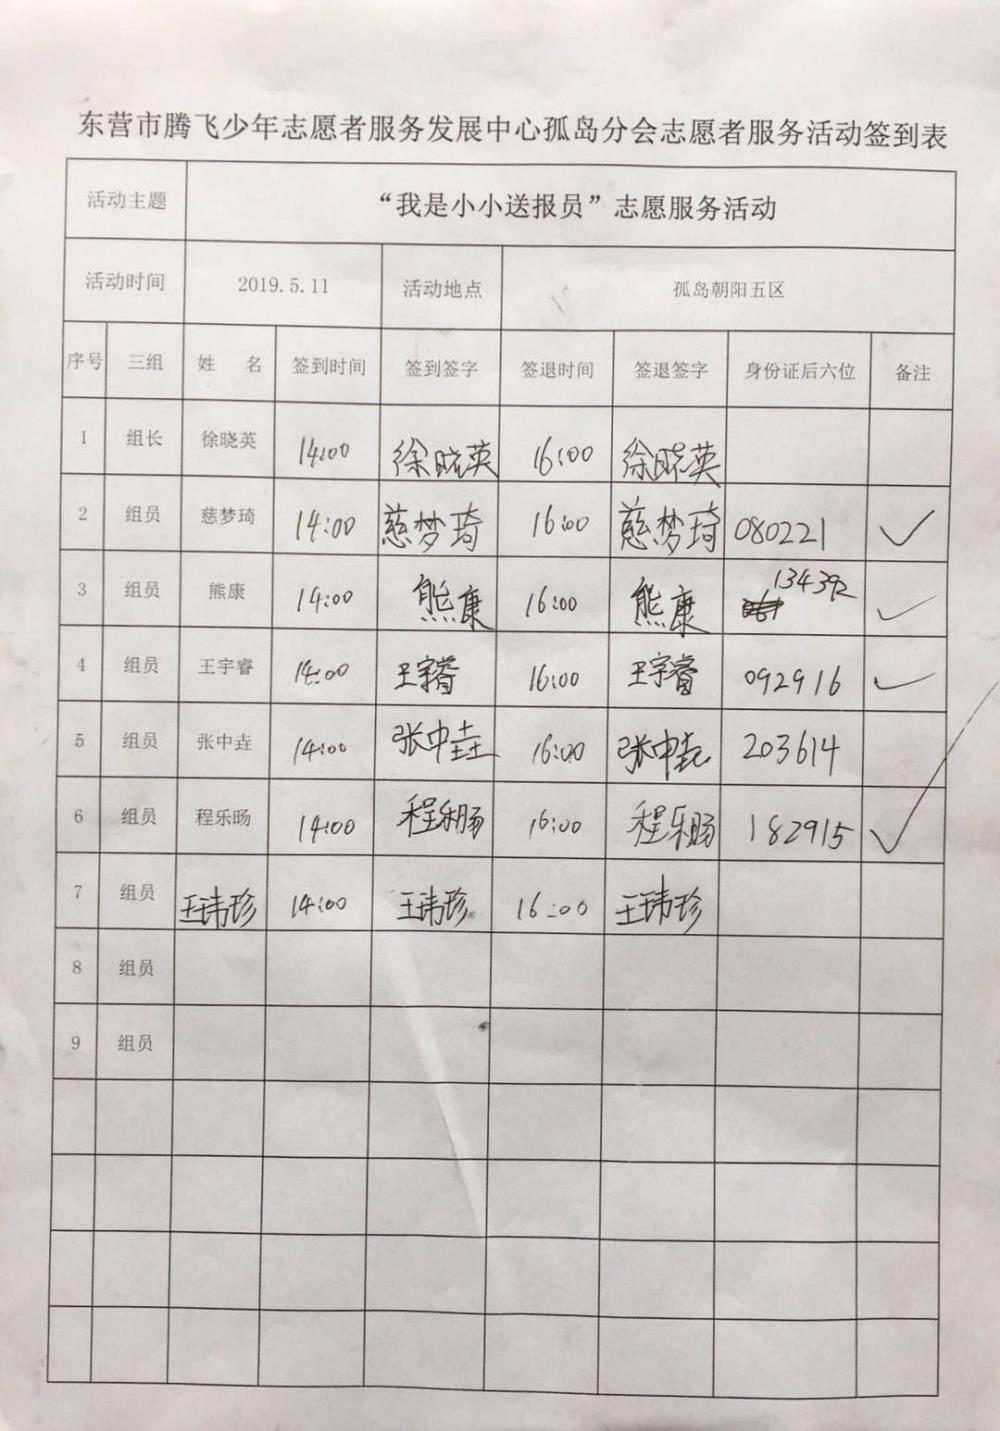 东营市腾飞少年志愿者服务发展中心孤岛分会志愿者服务活动签到表
活动主题 “我是小小送报员”志愿服务活动
活动时间 2019.5.11 活动地点 孤岛朝阳五区
序号 三组 姓 名 签到时间 签到签字 签退时间 签退签字 身份证后六位 备注
1 组长 徐晓英 14:00 徐晓英 16:00 徐晓英
2 组员 慈梦琦 14:00 慈梦琦 16:00 慈梦琦 080221 ✓
3 组员 熊康 14:00 熊康 16:00 熊康 134392 ✓
4 组员 王宇睿 14:00 王宇睿 16:00 王宇睿 092916 ✓
5 组员 张中垚 14:00 张中垚 16:00 张中垚 203614
6 组员 程乐旸 14:00 程乐旸 16:00 程乐旸 182915 ✓
7 组员 王玮珍 14:00 王玮珍 16:00 王玮珍
8 组员
9 组员